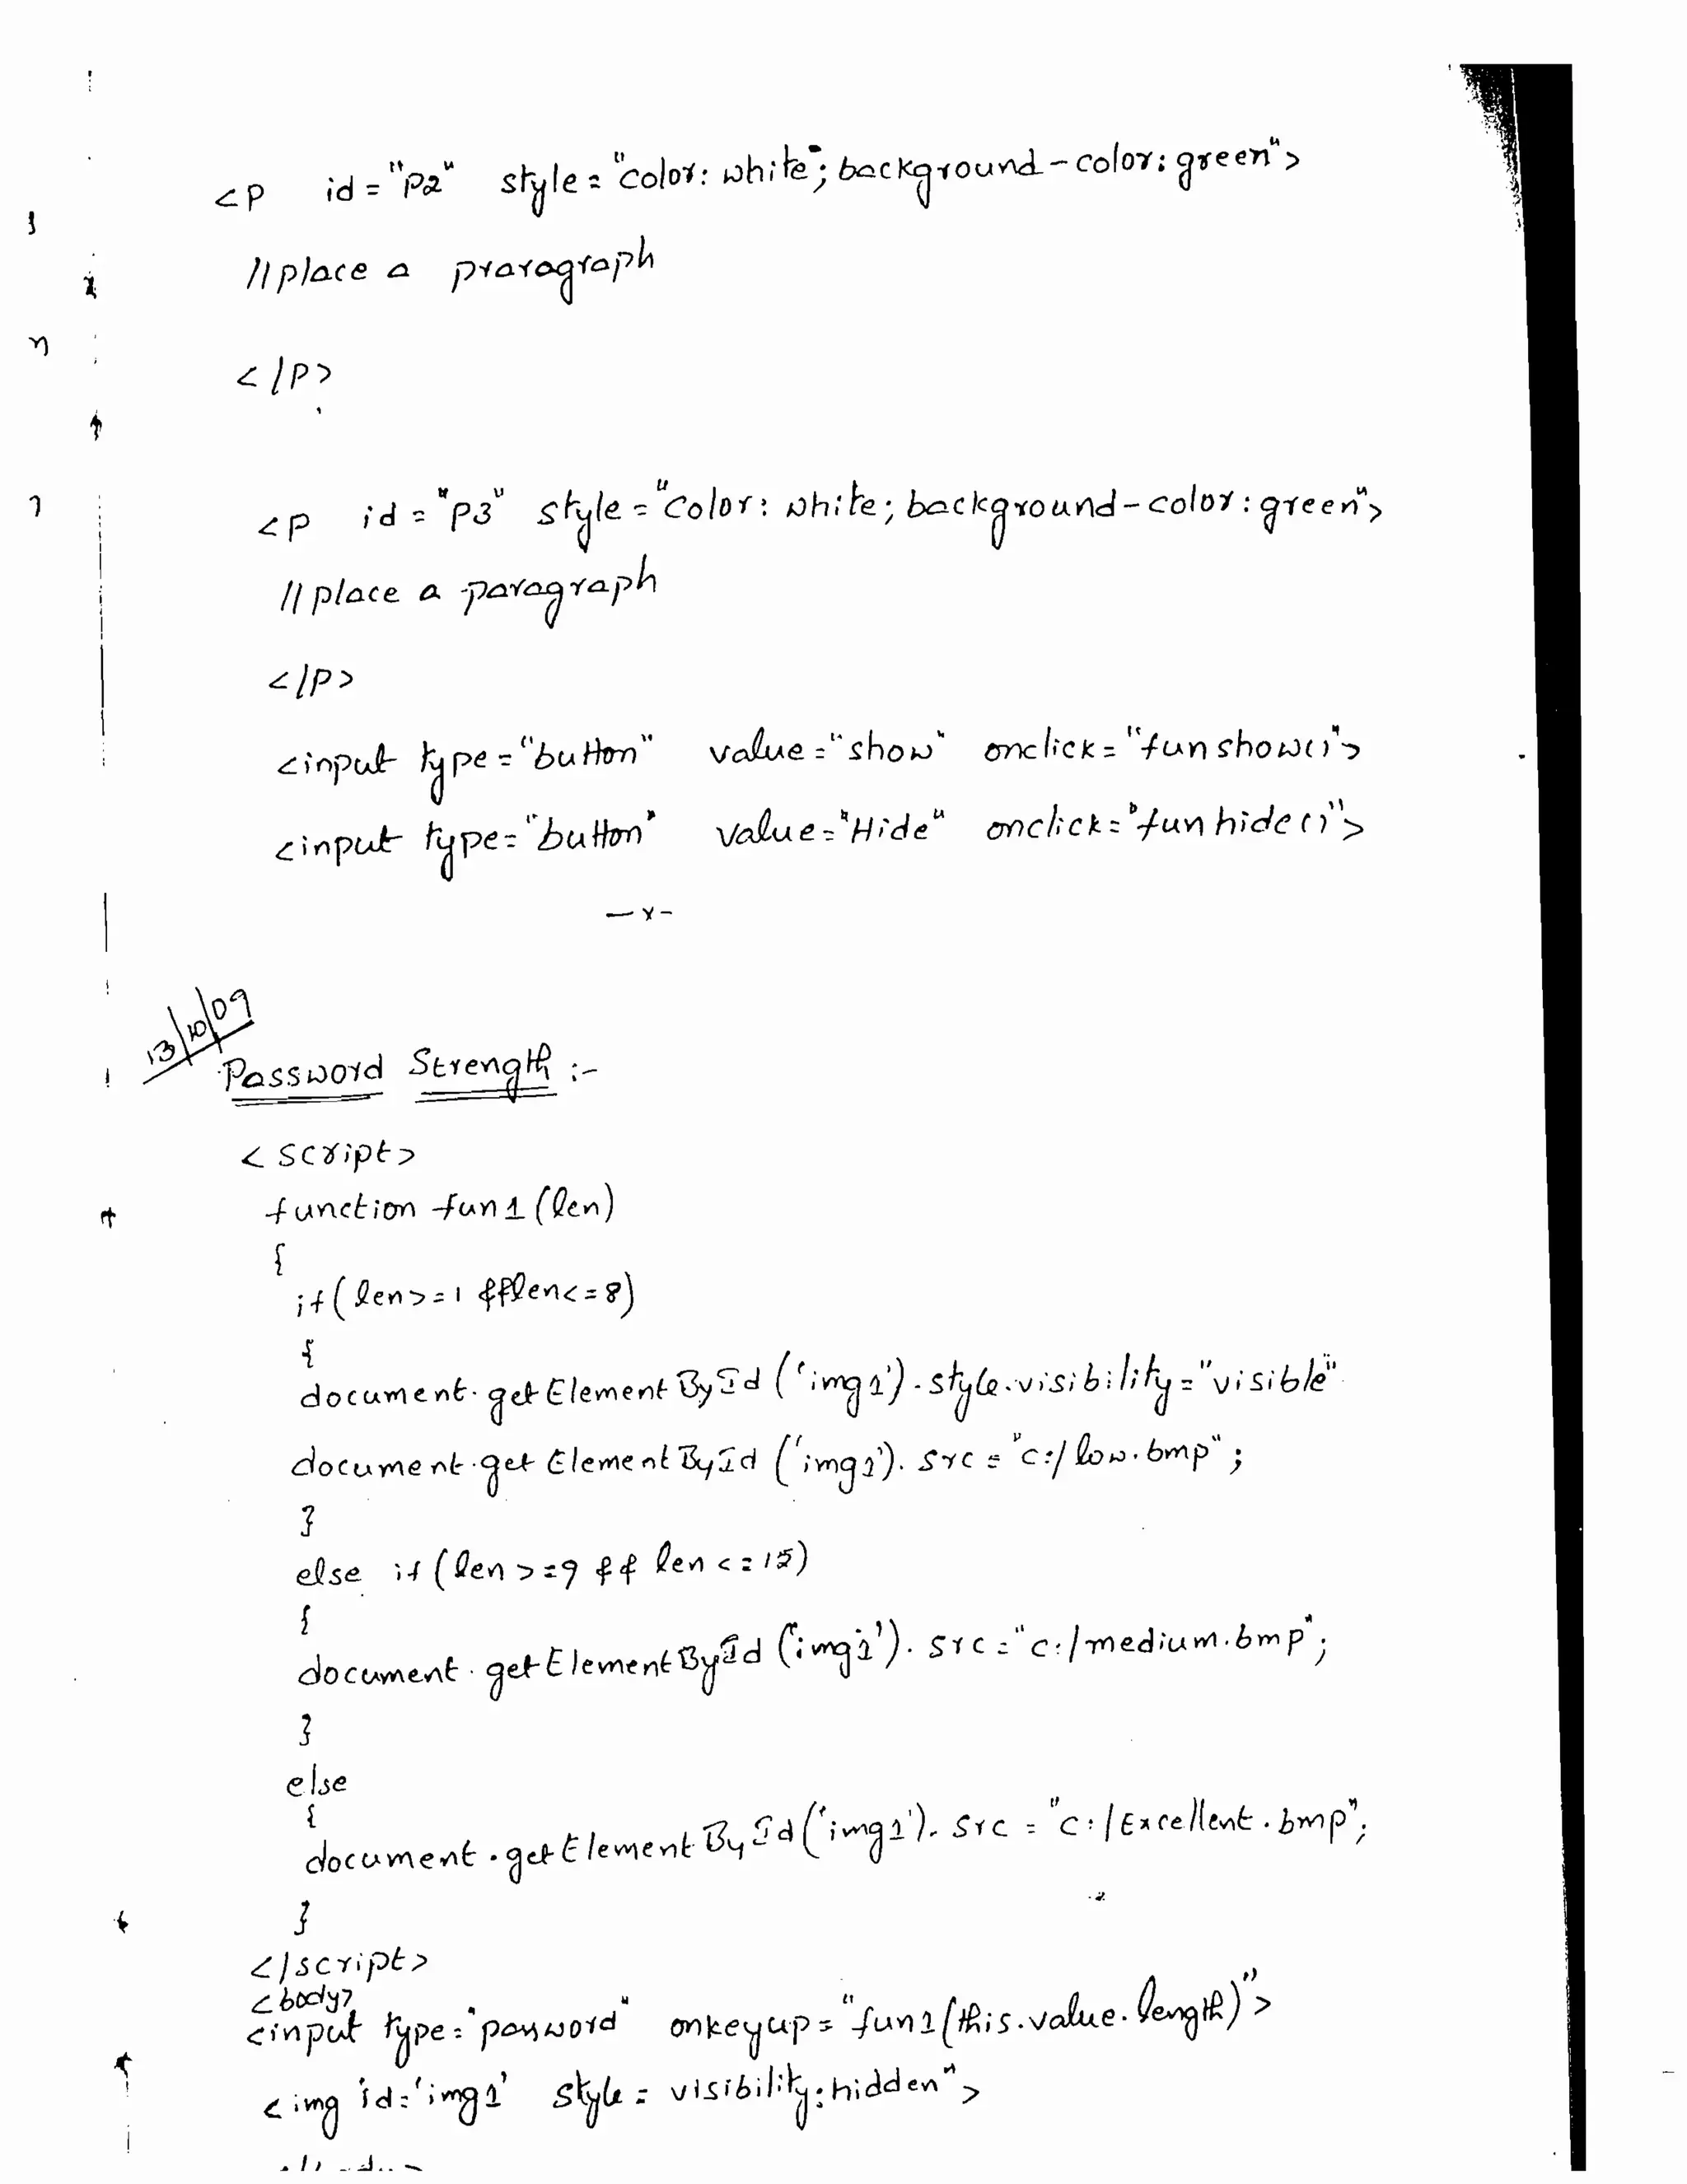 <p id="P2" style="color: white; background-color: green">
//place a praragraph
</P>
<p id="P3" style="color: white; background-color: green">
//place a paragraph
</P>
<input type="button" value="show" onclick="funshow()">
<input type="button" value="Hide" onclick="funhide()">
-x-
13/10/09
Password Strength :-
<script>
function fun1(len)
{
if(len>=1 &&len<=8)
{
document.getElementById('img1').style.visibility="visible"
document.getElementById('img1').src="c:/low.bmp";
}
else if(len>=9 && len<=15)
{
document.getElementById('img1').src="c:/medium.bmp";
}
else
{
document.getElementById('img1').src="c:/Excellent.bmp";
}
</script>
<body>
<input type="password" onkeyup="fun1(this.value.length)">
<img id='img1' style=visibility:hidden">